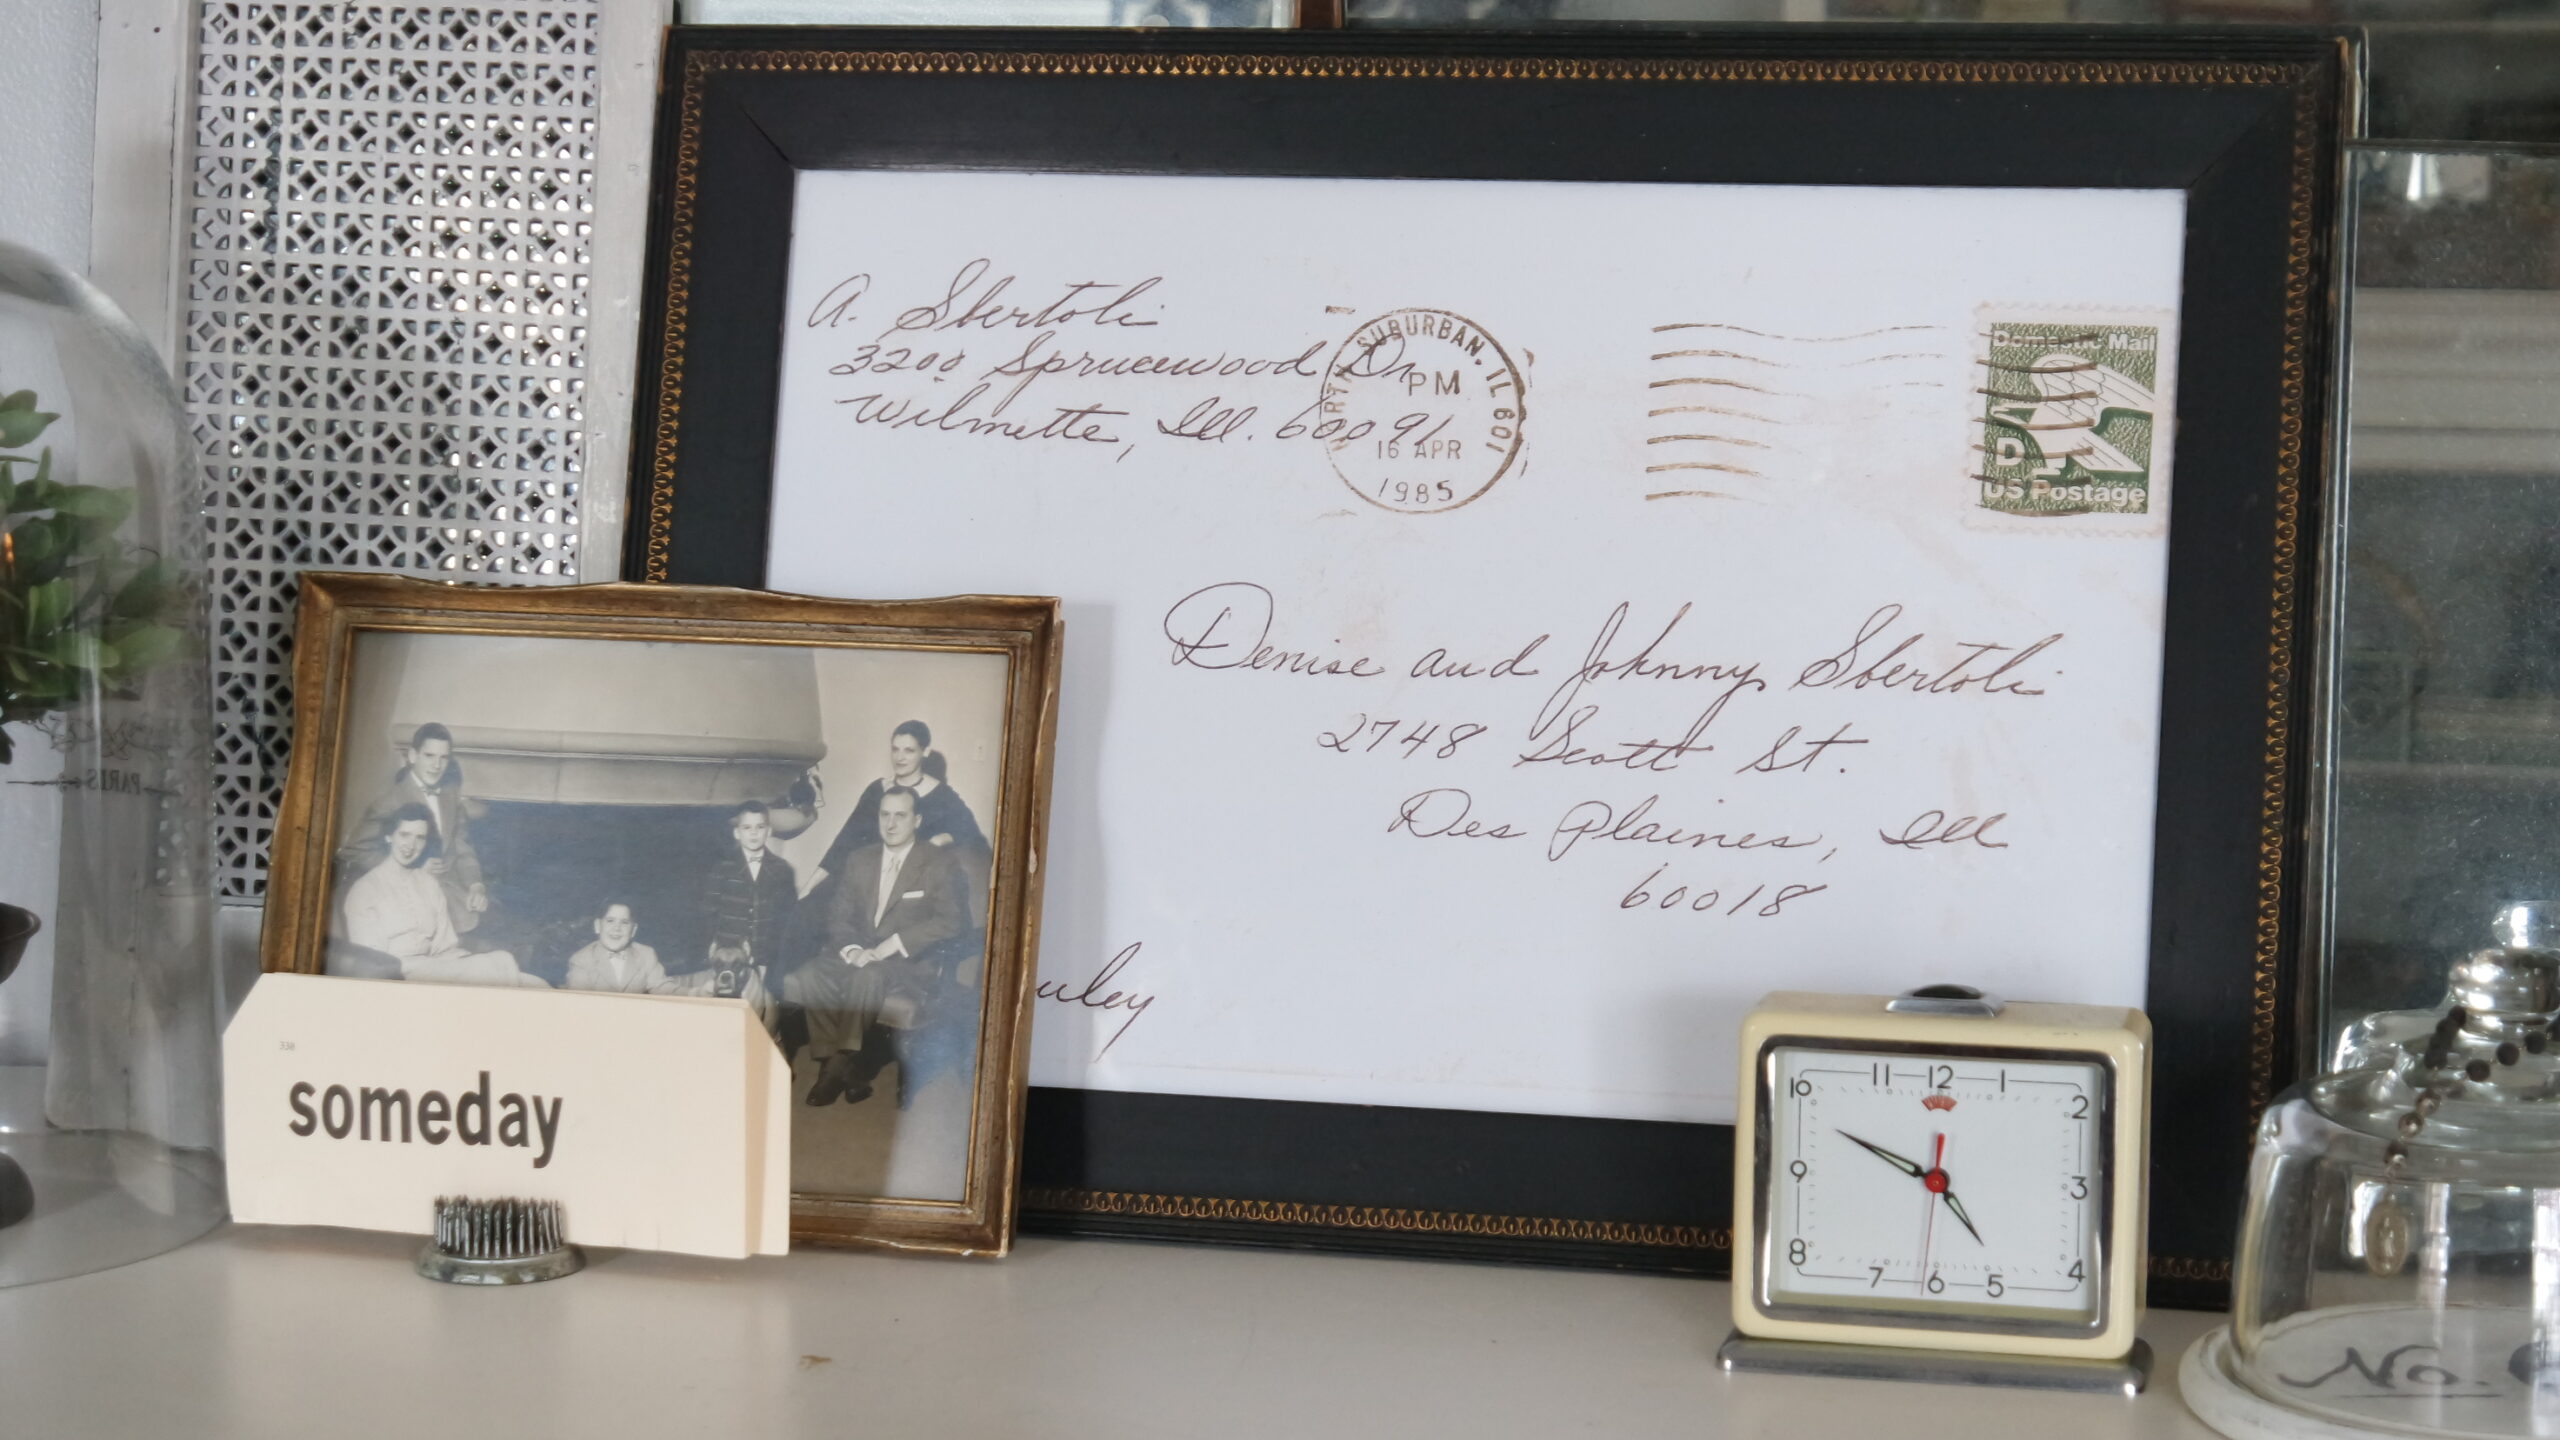 A. Sbertoli
3200 Sprucewood Dr.
Wilmette, Ill. 60091
NORTH SUBURBAN, IL 601
PM
16 APR
1985
Domestic Mail
D
US Postage
Denise and Johnny Sbertoli
2748 Scott St.
Des Plaines, Ill
60018
uley
338
someday
PARIS
11 12 1
10 2
9 3
8 4
7 6 5
No.